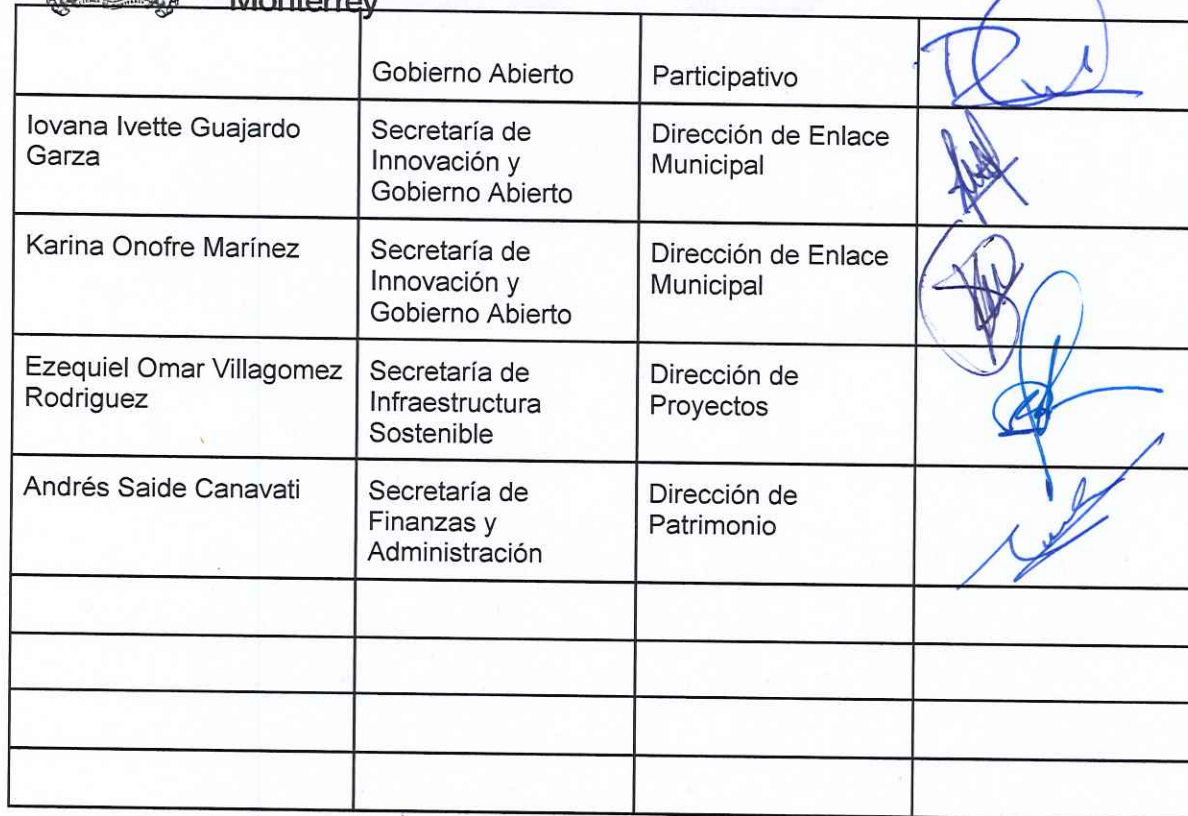 Monterrey
Gobierno Abierto
Participativo
Iovana Ivette Guajardo
Garza
Secretaría de
Innovación y
Gobierno Abierto
Dirección de Enlace
Municipal
Karina Onofre Marínez
Secretaría de
Innovación y
Gobierno Abierto
Dirección de Enlace
Municipal
Ezequiel Omar Villagomez
Rodriguez
Secretaría de
Infraestructura
Sostenible
Dirección de
Proyectos
Andrés Saide Canavati
Secretaría de
Finanzas y
Administración
Dirección de
Patrimonio